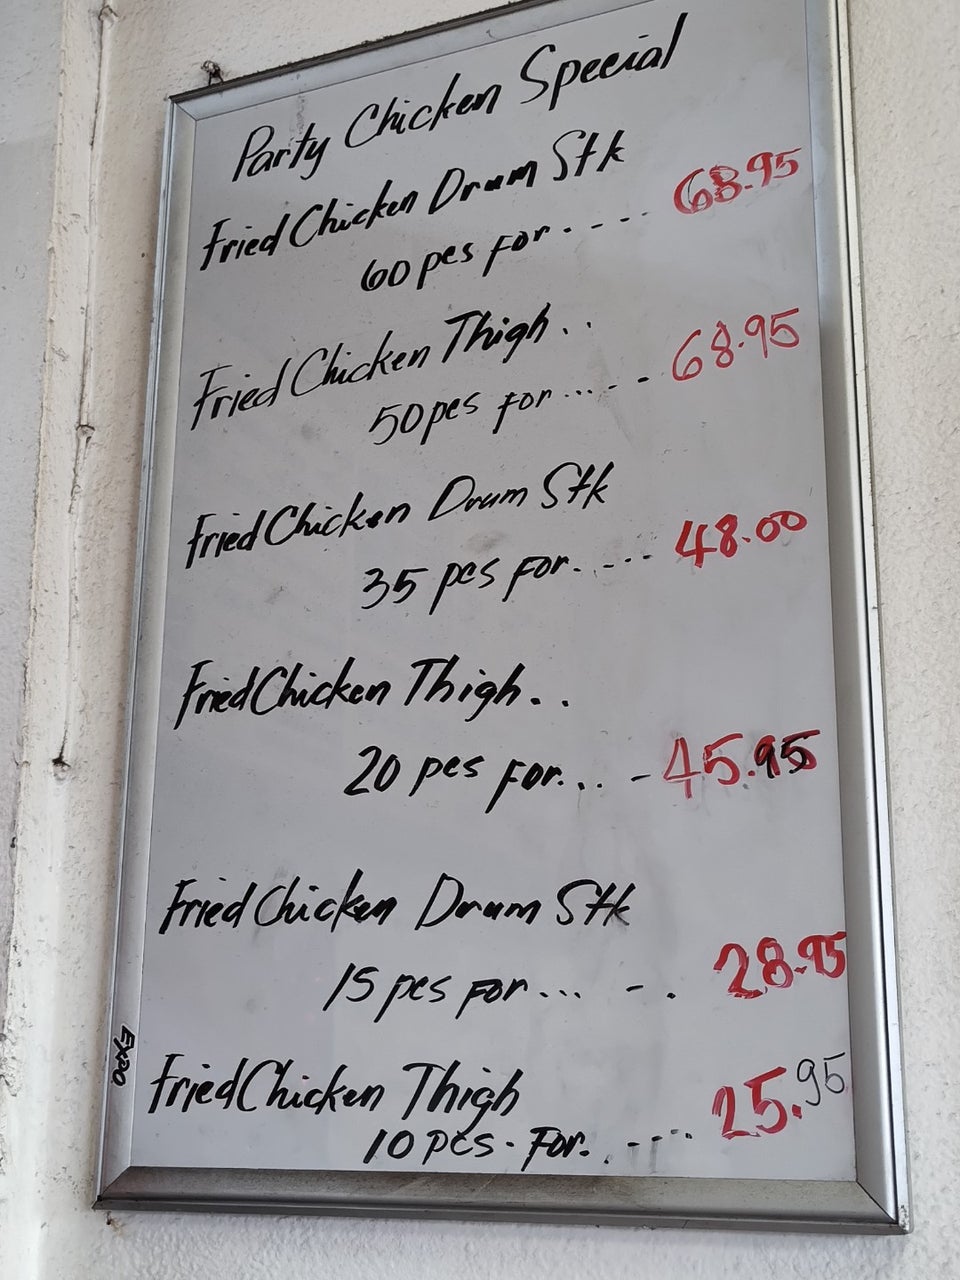 Party Chicken Special
Fried Chicken Drum Stk
60 pcs for . - - - - 68.95
Fried Chicken Thigh . .
50 pcs for ... - - 68.95
Fried Chicken Drum Stk
35 pcs for. . - - - 48.00
Fried Chicken Thigh . .
20 pcs for... - 45.95
Fried Chicken Drum Stk
15 pcs for ... - . 28.95
Fried Chicken Thigh
10 pcs - For. . - - - . 25.95
Expo